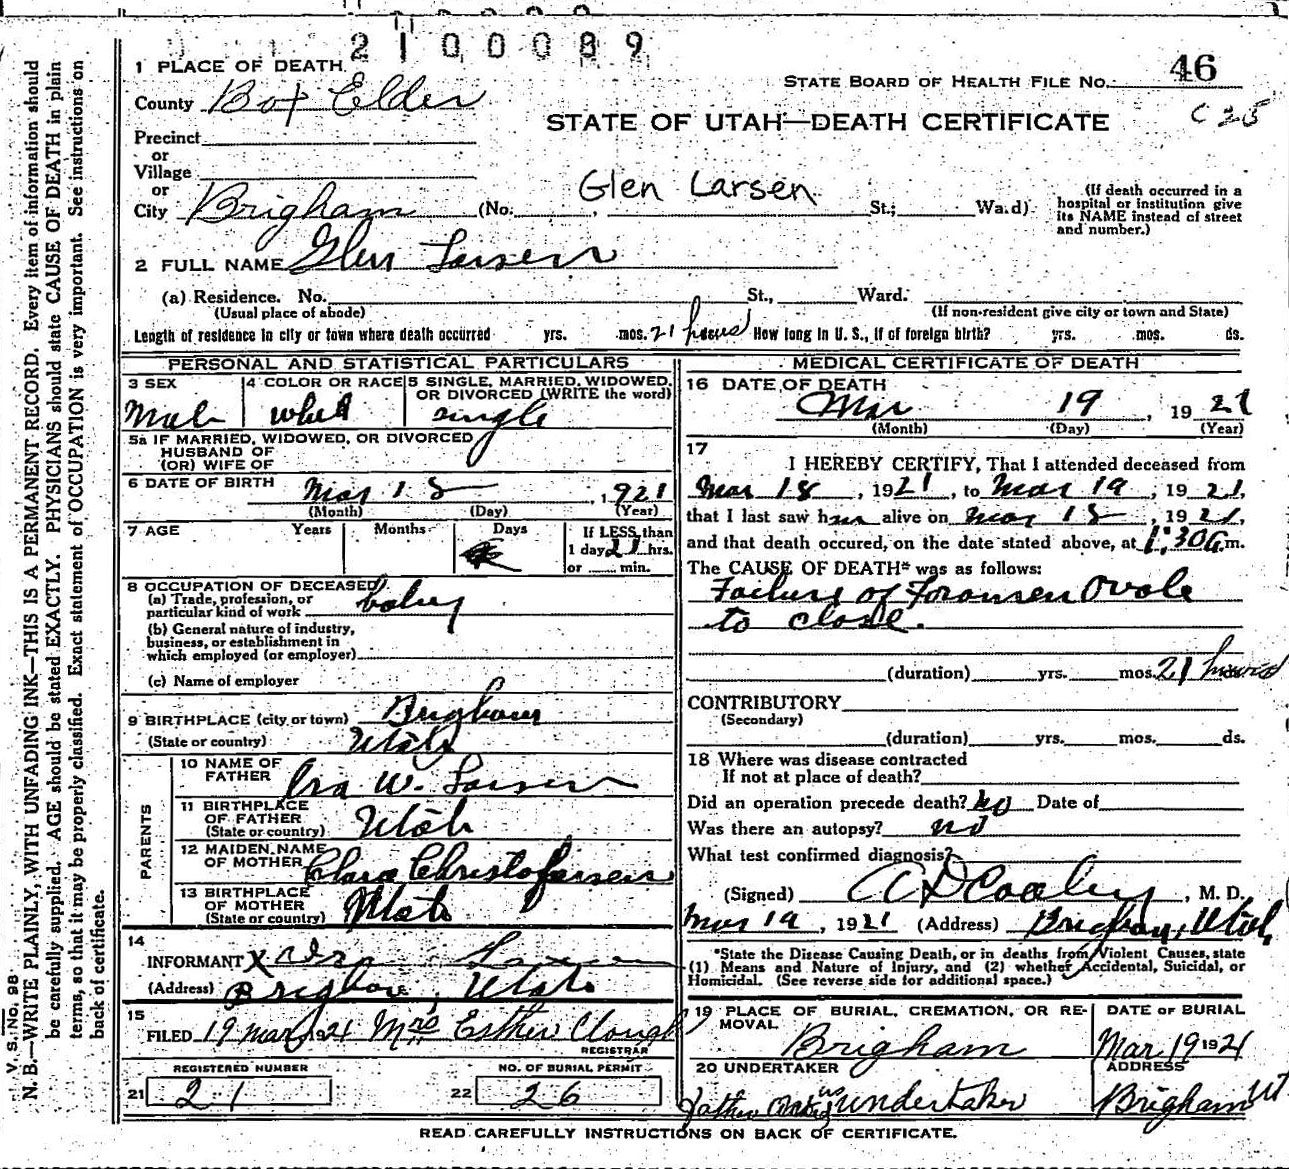 2100089
1 PLACE OF DEATH
STATE BOARD OF HEALTH FILE No. 46
County Box Elder
C 25
STATE OF UTAH—DEATH CERTIFICATE
Precinct
or
Village
or
Glen Larsen
City Brigham (No. St.; Ward)
(If death occurred in a hospital or institution give its NAME instead of street and number.)
2 FULL NAME Glen Larsen
(a) Residence. No. St., Ward.
(Usual place of abode) (If non-resident give city or town and State)
Length of residence in city or town where death occurred yrs. mos. 21 hours How long in U. S., if of foreign birth? yrs. mos. ds.
PERSONAL AND STATISTICAL PARTICULARS
3 SEX 4 COLOR OR RACE 5 SINGLE, MARRIED, WIDOWED,
OR DIVORCED (WRITE the word)
Male whit single
5a IF MARRIED, WIDOWED, OR DIVORCED
HUSBAND OF
(OR) WIFE OF
6 DATE OF BIRTH Mar 18, 1921
(Month) (Day) (Year)
7 AGE Years Months Days If LESS than
1 day 21 hrs.
or min.
8 OCCUPATION OF DECEASED
(a) Trade, profession, or
particular kind of work baby
(b) General nature of industry,
business, or establishment in
which employed (or employer)
(c) Name of employer
9 BIRTHPLACE (city or town) Brigham
(State or country) Utah
PARENTS
10 NAME OF
FATHER Ora W. Larsen
11 BIRTHPLACE
OF FATHER
(State or country) Utah
12 MAIDEN NAME
OF MOTHER Clara Christofersen
13 BIRTHPLACE
OF MOTHER
(State or country) Utah
14
INFORMANT X Ora Larsen
(Address) Brigham, Utah
15
FILED 19 Mar 1921 Mrs Esther Clough
REGISTRAR
REGISTERED NUMBER NO. OF BURIAL PERMIT
21 21 22 26
MEDICAL CERTIFICATE OF DEATH
16 DATE OF DEATH
Mar 19, 1921
(Month) (Day) (Year)
17
I HEREBY CERTIFY, That I attended deceased from
Mar 18, 1921, to Mar 19, 1921,
that I last saw him alive on Mar 18, 1921,
and that death occured, on the date stated above, at 1:30 a.m.
The CAUSE OF DEATH* was as follows:
Failure of Foramen Ovale
to close.
(duration) yrs. mos. 21 hours
CONTRIBUTORY
(Secondary)
(duration) yrs. mos. ds.
18 Where was disease contracted
If not at place of death?
Did an operation precede death? no Date of
Was there an autopsy? no
What test confirmed diagnosis?
(Signed) A D Cooley, M. D.
Mar 19, 1921 (Address) Brigham, Utah
*State the Disease Causing Death, or in deaths from Violent Causes, state
(1) Means and Nature of Injury, and (2) whether Accidental, Suicidal, or
Homicidal. (See reverse side for additional space.)
19 PLACE OF BURIAL, CREMATION, OR REMOVAL DATE OF BURIAL
Brigham Mar 19 1921
20 UNDERTAKER ADDRESS
father no undertaker Brigham Ut
READ CAREFULLY INSTRUCTIONS ON BACK OF CERTIFICATE.
V. S. No. 98
N. B.—WRITE PLAINLY, WITH UNFADING INK—THIS IS A PERMANENT RECORD. Every item of information should
be carefully supplied. AGE should be stated EXACTLY. PHYSICIANS should state CAUSE OF DEATH in plain
terms, so that it may be properly classified. Exact statement of OCCUPATION is very important. See instructions on
back of certificate.